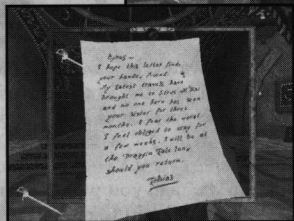 I hope this letter finds
your handey friend.
My latest travels have
brought me to
and no one here has seen
your sister for three
months. I fear the worst.
I feel obliged to stay for
a few weeks. I will be at
the Draggin Tale Inn
should you return.